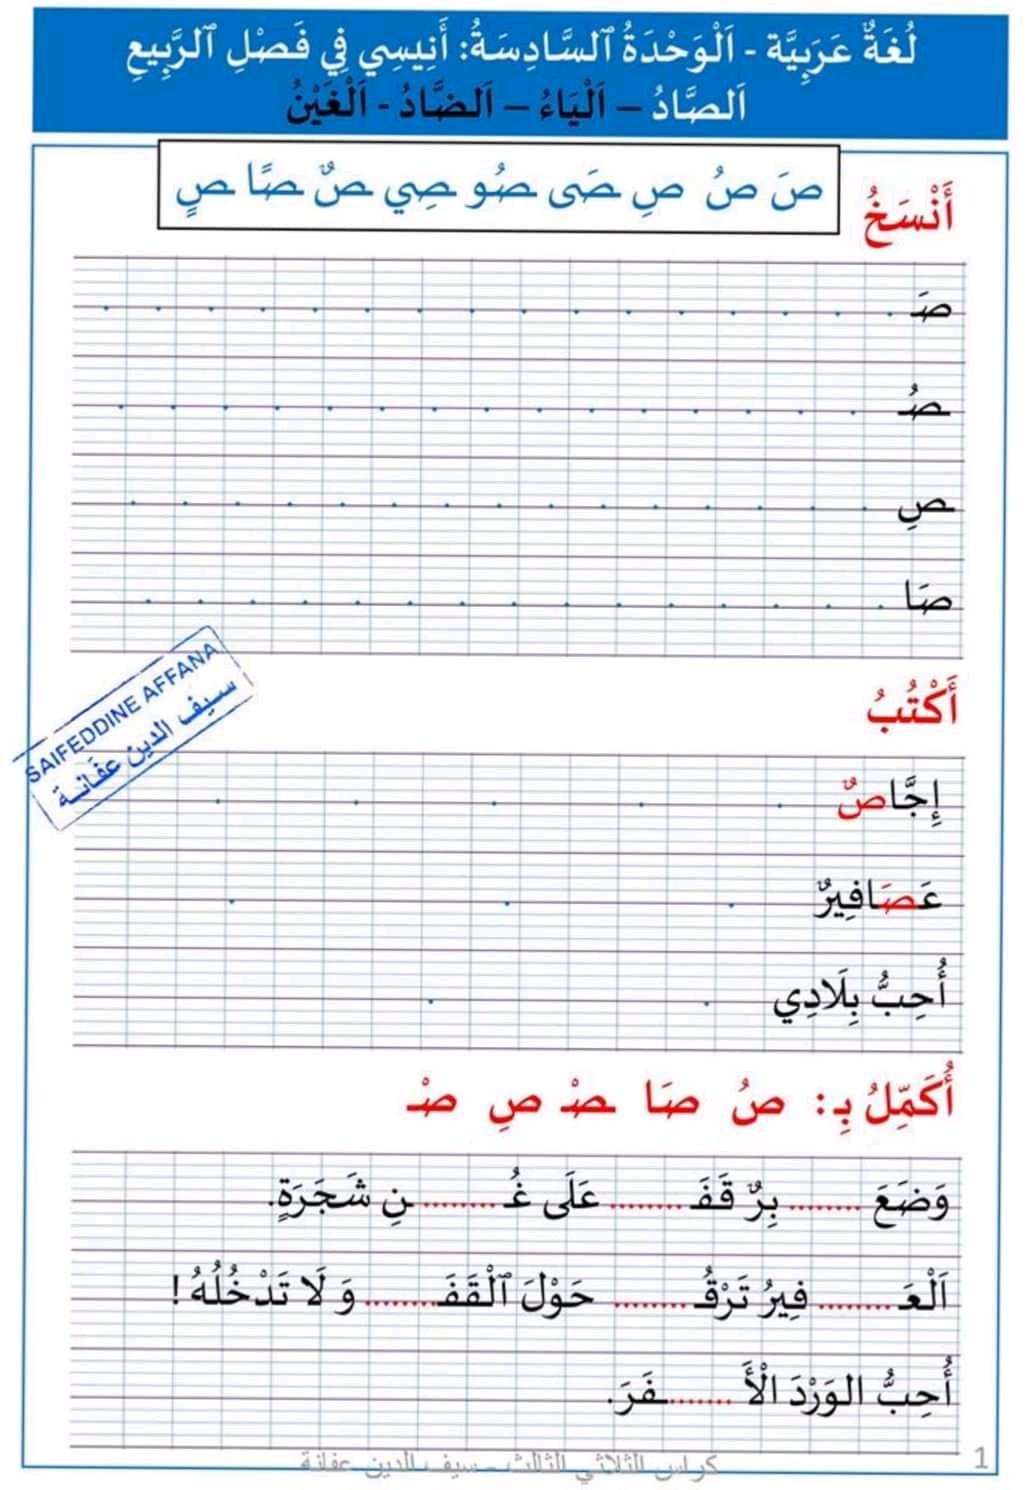 لُغَةٌ عَرَبِيَّة - اَلْوَحْدَةُ ٱلسَّادِسَةُ: أَنِيسِي فِي فَصْلِ ٱلرَّبِيعِ
اَلصَّادُ – اَلْيَاءُ – اَلضَّادُ - اَلْغَيْنُ
أَنْسَخُ
صَ صُ صِ صَى صُو صِي صٌ صًا صٍ
صَـ
ـصُـ
ـصِ
صَا
SAIFEDDINE AFFANA
سيف الدين عفانة
أَكْتُبُ
إِجَّاصٌ
عَصَافِيرٌ
أُحِبُّ بِلَادِي
أُكَمِّلُ بِـ: صُ صَا ـصْـ صِ صْـ
وَضَعَ ........ بِرٌ قَفَـ ........ عَلَى غُـ ........ ـنِ شَجَرَةٍ.
اَلْعَـ ........ فِيرُ تَرْقُـ ........ حَوْلَ ٱلْقَفَـ ........ وَ لَا تَدْخُلُهُ !
أُحِبُّ الوَرْدَ الْأَ ........ ـفَرَ.
كراس الثلاثي الثالث – سيف الدين عفانة
1